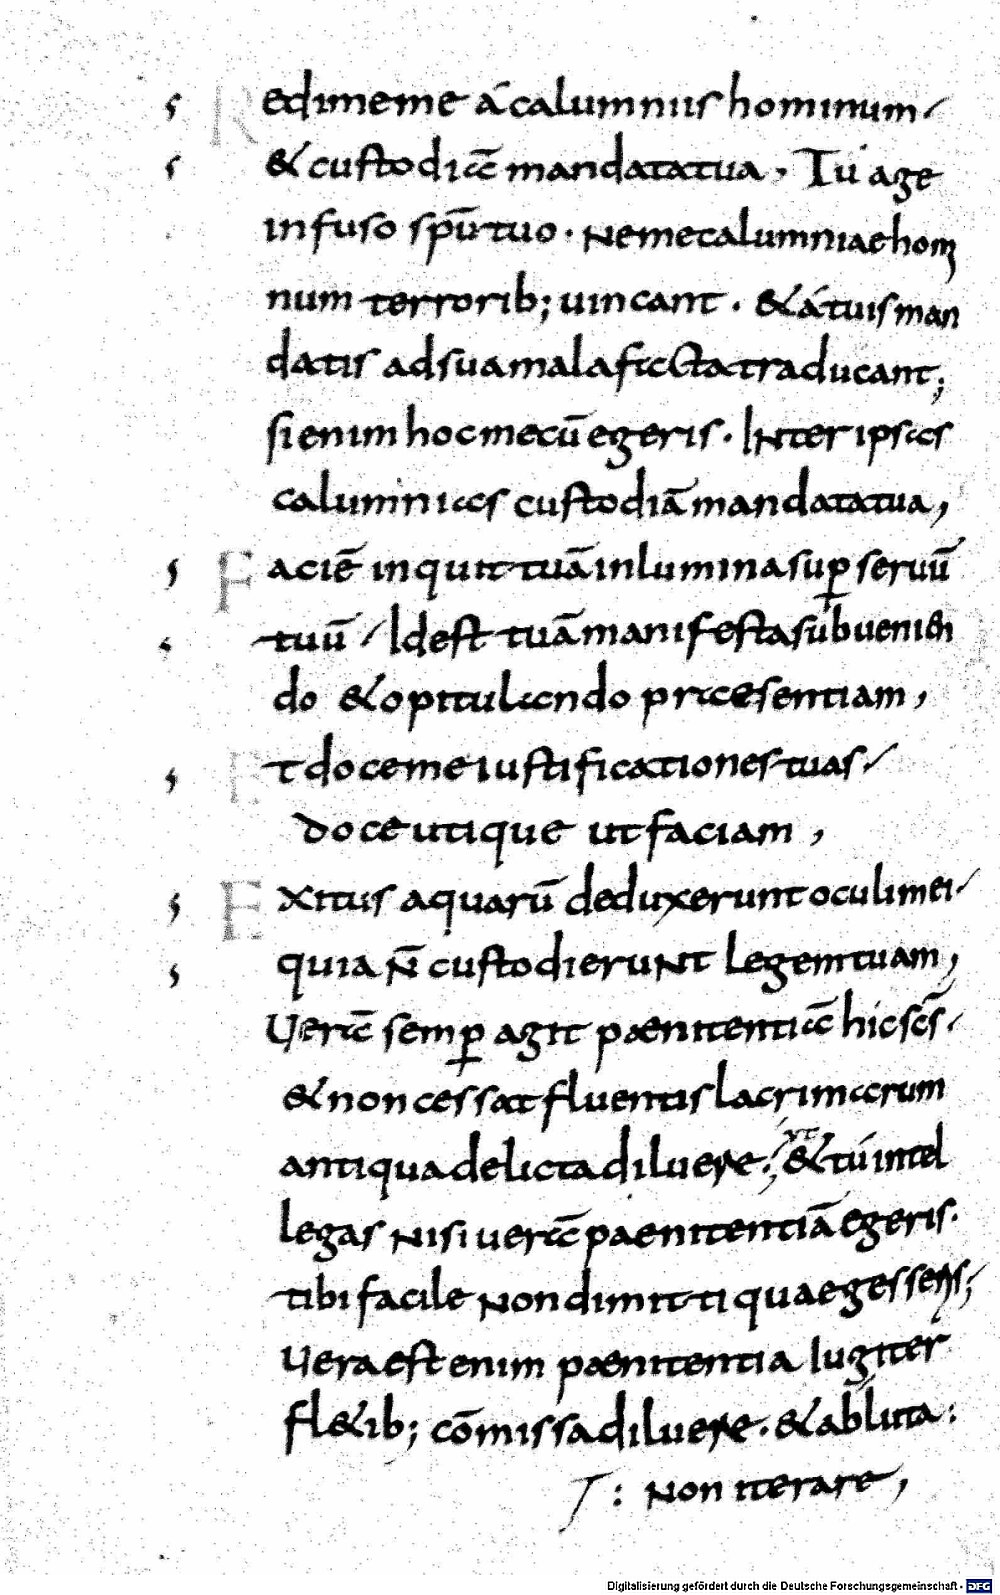 Redime me á calumniis hominum
& custodiā mandata tua, Tu age
infuso spū tuo. Ne me calumniae homi
num terrorib; uincant. & á tuis man
datis ad sua malaficta traducant;
si enim hoc mecū egeris. Inter ipsas
calumnias custodiā mandata tua,
Faciē inquit tuā inlumina sup seruū
tuū / Idest tuā manifesta subuenien
do & opitulando praesentiam,
Et doce me iustificationes tuas /
Doce utique ut faciam,
Exitus aquarū deduxerunt oculi mei /
quia ñ custodierunt legem tuam,
Uerā semp agit paenitentiā hic scs /
& non cessat fluentis lacrimarum
antiqua delicta diluere; ut & tú intel
legas nisi uerā paenitentiā egeris.
tibi facile non dimitti quae gesseris;
Uera est enim paenitentia iugiter
fl&ib; cōmissa diluere. & abluta:
: non iterare,
Digitalisierung gefördert durch die Deutsche Forschungsgemeinschaft - DFG